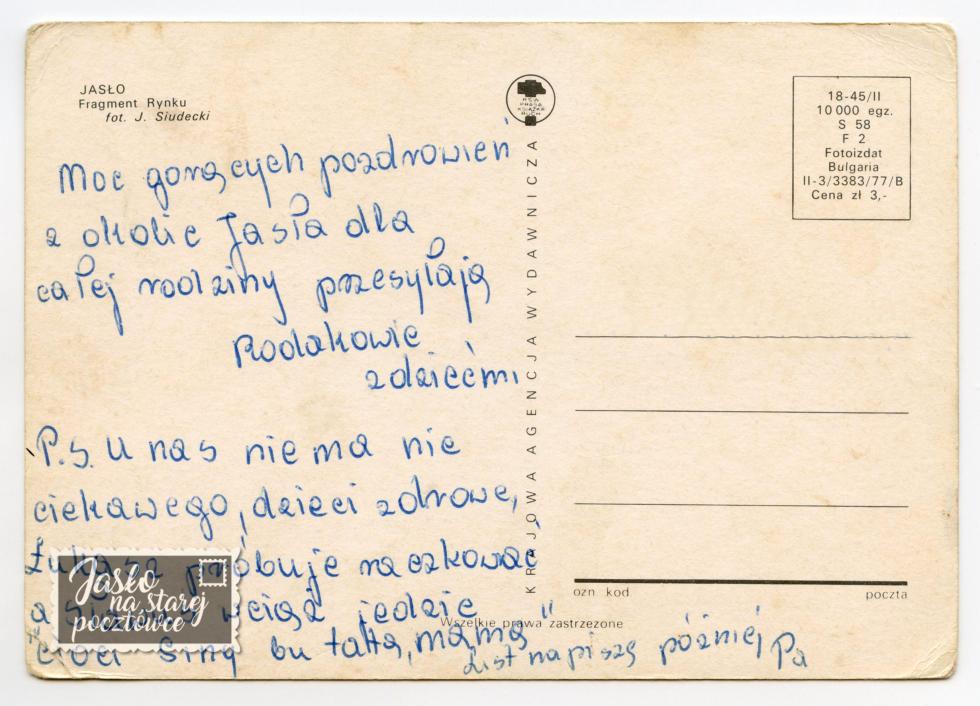 JASŁO
Fragment Rynku
fot. J. Siudecki
Moc gorących pozdrowień
z okolic Jasła dla
całej rodziny przesyłają
Rodakowie
z dziećmi
P.S. U nas nie ma nic
ciekawego, dzieci zdrowe,
próbuje raczkować
a wciąż jedzie
bu tata, mama"
List napiszę później Pa
KRAJOWA AGENCJA WYDAWNICZA
RSW
PRASA
KSIĄŻKA
RUCH
18-45/II
10 000 egz.
S 58
F 2
Fotoizdat
Bulgaria
II-3/3383/77/B
Cena zł 3,-
ozn kod
poczta
Wszelkie prawa zastrzeżone
Jasło
na starej
pocztówce